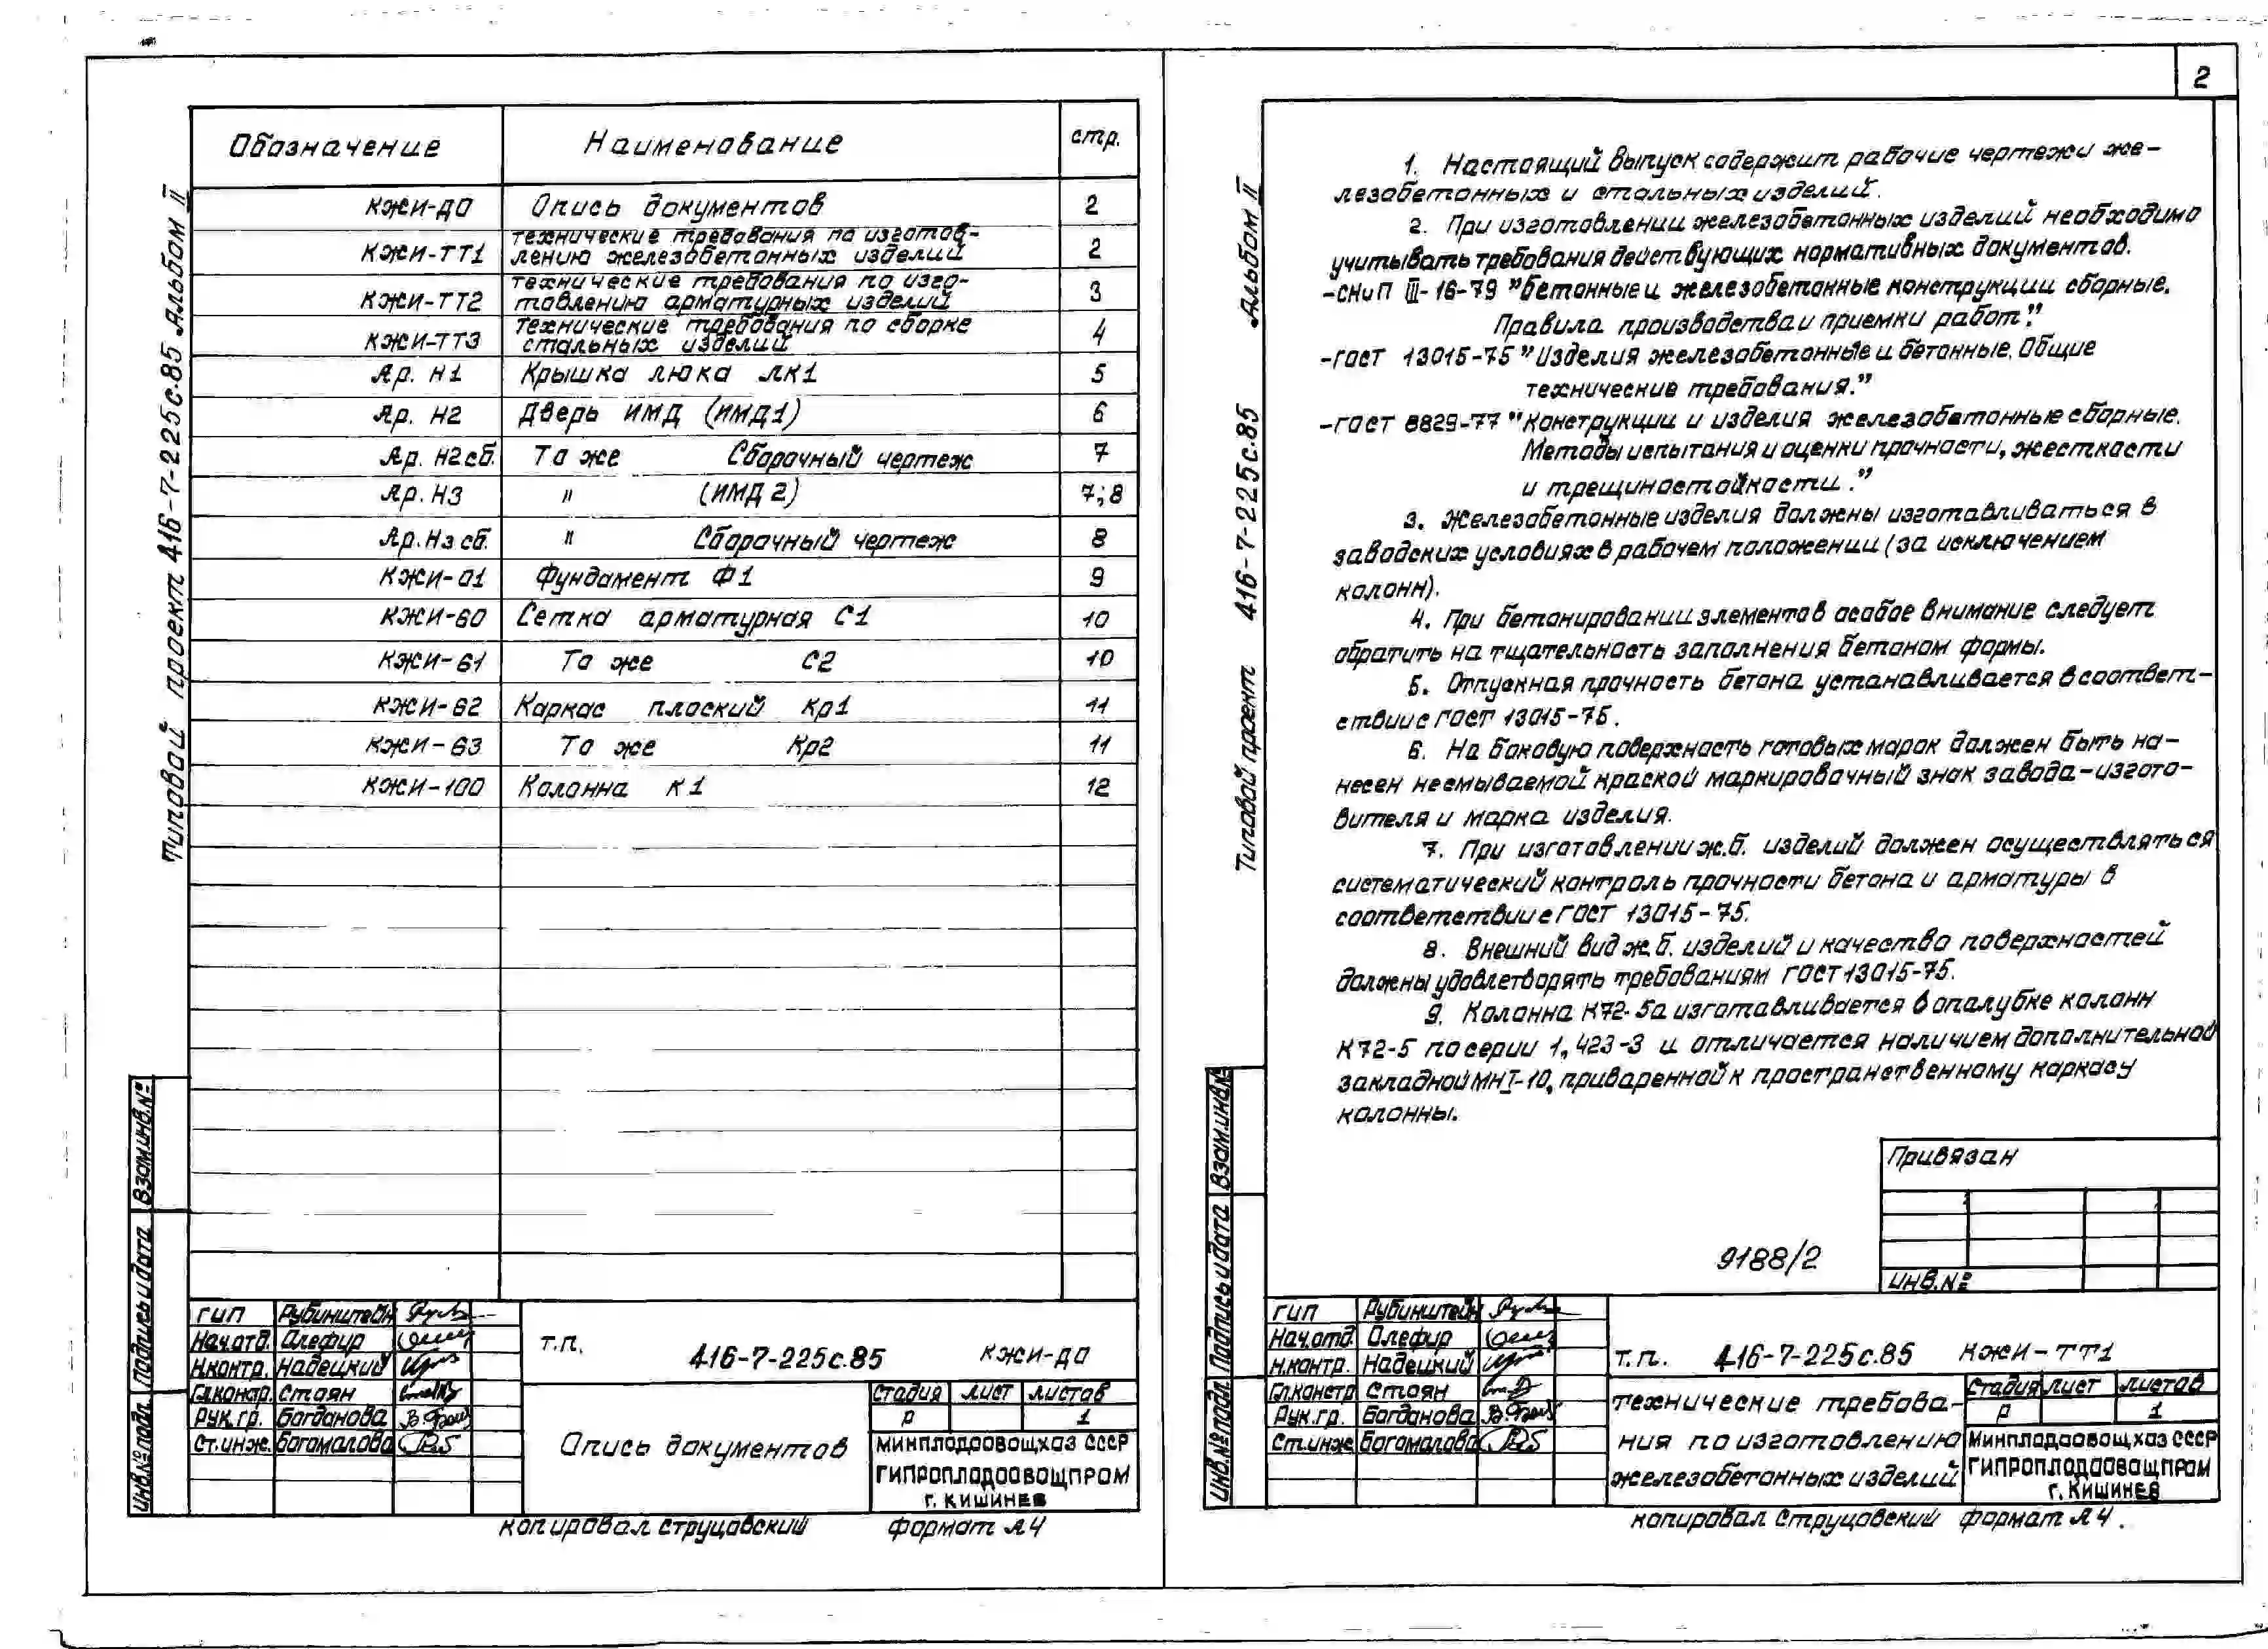 2
Типовой проект 416-7-225с.85 Альбом II
Обозначение Наименование стр.
КЖИ-ДО Опись документов 2
КЖИ-ТТ1 технические требования по изготов-
лению железобетонных изделий 2
КЖИ-ТТ2 технические требования по изго-
товлению арматурных изделий 3
КЖИ-ТТ3 Технические требования по сборке
стальных изделий 4
Ар. Н1 Крышка люка ЛК1 5
Ар. Н2 Дверь ИМД (ИМД1) 6
Ар. Н2сб. То же Сборочный чертеж 7
Ар. Н3 " (ИМД2) 7;8
Ар. Н3 сб. " Сборочный чертеж 8
КЖИ-01 Фундамент Ф1 9
КЖИ-60 Сетка арматурная С1 10
КЖИ-61 То же С2 10
КЖИ-62 Каркас плоский Кр1 11
КЖИ-63 То же Кр2 11
КЖИ-100 Колонна К1 12
Взам.инв.№
Подпись и дата
Инв.№ подл.
ГИП Рубинштейн
Нач.отд. Олефир
Н.контр. Надецкий
Гл.констр. Стоян
Рук.гр. Богданова
Ст.инж. Богомолова
т.п. 416-7-225с.85 КЖИ-ДО
Опись документов
Стадия лист листов
Р 1
Минплодоовощхоз СССР
Гипроплодоовощпром
г. Кишинев
копировал Струцовский формат А4
Типовой проект 416-7-225с.85 Альбом II
1. Настоящий выпуск содержит рабочие чертежи же-
лезобетонных и стальных изделий.
2. При изготовлении железобетонных изделий необходимо
учитывать требования действующих нормативных документов.
-СНиП III-16-79 "Бетонные и железобетонные конструкции сборные.
Правила производства и приемки работ".
-ГОСТ 13015-75 "Изделия железобетонные и бетонные. Общие
технические требования."
-ГОСТ 8829-77 "Конструкции и изделия железобетонные сборные.
Методы испытания и оценки прочности, жесткости
и трещиностойкости."
3. Железобетонные изделия должны изготавливаться в
заводских условиях в рабочем положении (за исключением
колонн).
4. При бетонировании элементов особое внимание следует
обратить на тщательность заполнения бетоном формы.
5. Отпускная прочность бетона устанавливается в соответ-
ствии с ГОСТ 13015-75.
6. На боковую поверхность готовых марок должен быть на-
несен несмываемой краской маркировочный знак завода-изгото-
вителя и марка изделия.
7. При изготовлении ж.б. изделий должен осуществляться
систематический контроль прочности бетона и арматуры в
соответствии с ГОСТ 13015-75.
8. Внешний вид ж.б. изделий и качество поверхностей
должны удовлетворять требованиям ГОСТ 13015-75.
9. Колонна К72-5а изготавливается в опалубке колонн
К72-5 по серии 1.423-3 и отличается наличием дополнительной
закладной МНI-10, приваренной к пространственному каркасу
колонны.
Привязан
Инв.№
9188/2
Взам.инв.№
Подпись и дата
Инв.№ подл.
ГИП Рубинштейн
Нач.отд. Олефир
Н.контр. Надецкий
Гл.констр Стоян
Рук.гр. Богданова
Ст.инж Богомолова
т.п. 416-7-225с.85 КЖИ-ТТ1
технические требова-
ния по изготовлению
железобетонных изделий
Стадия лист листов
Р 1
Минплодоовощхоз СССР
Гипроплодоовощпром
г. Кишинев
копировал Струцовский формат А4.